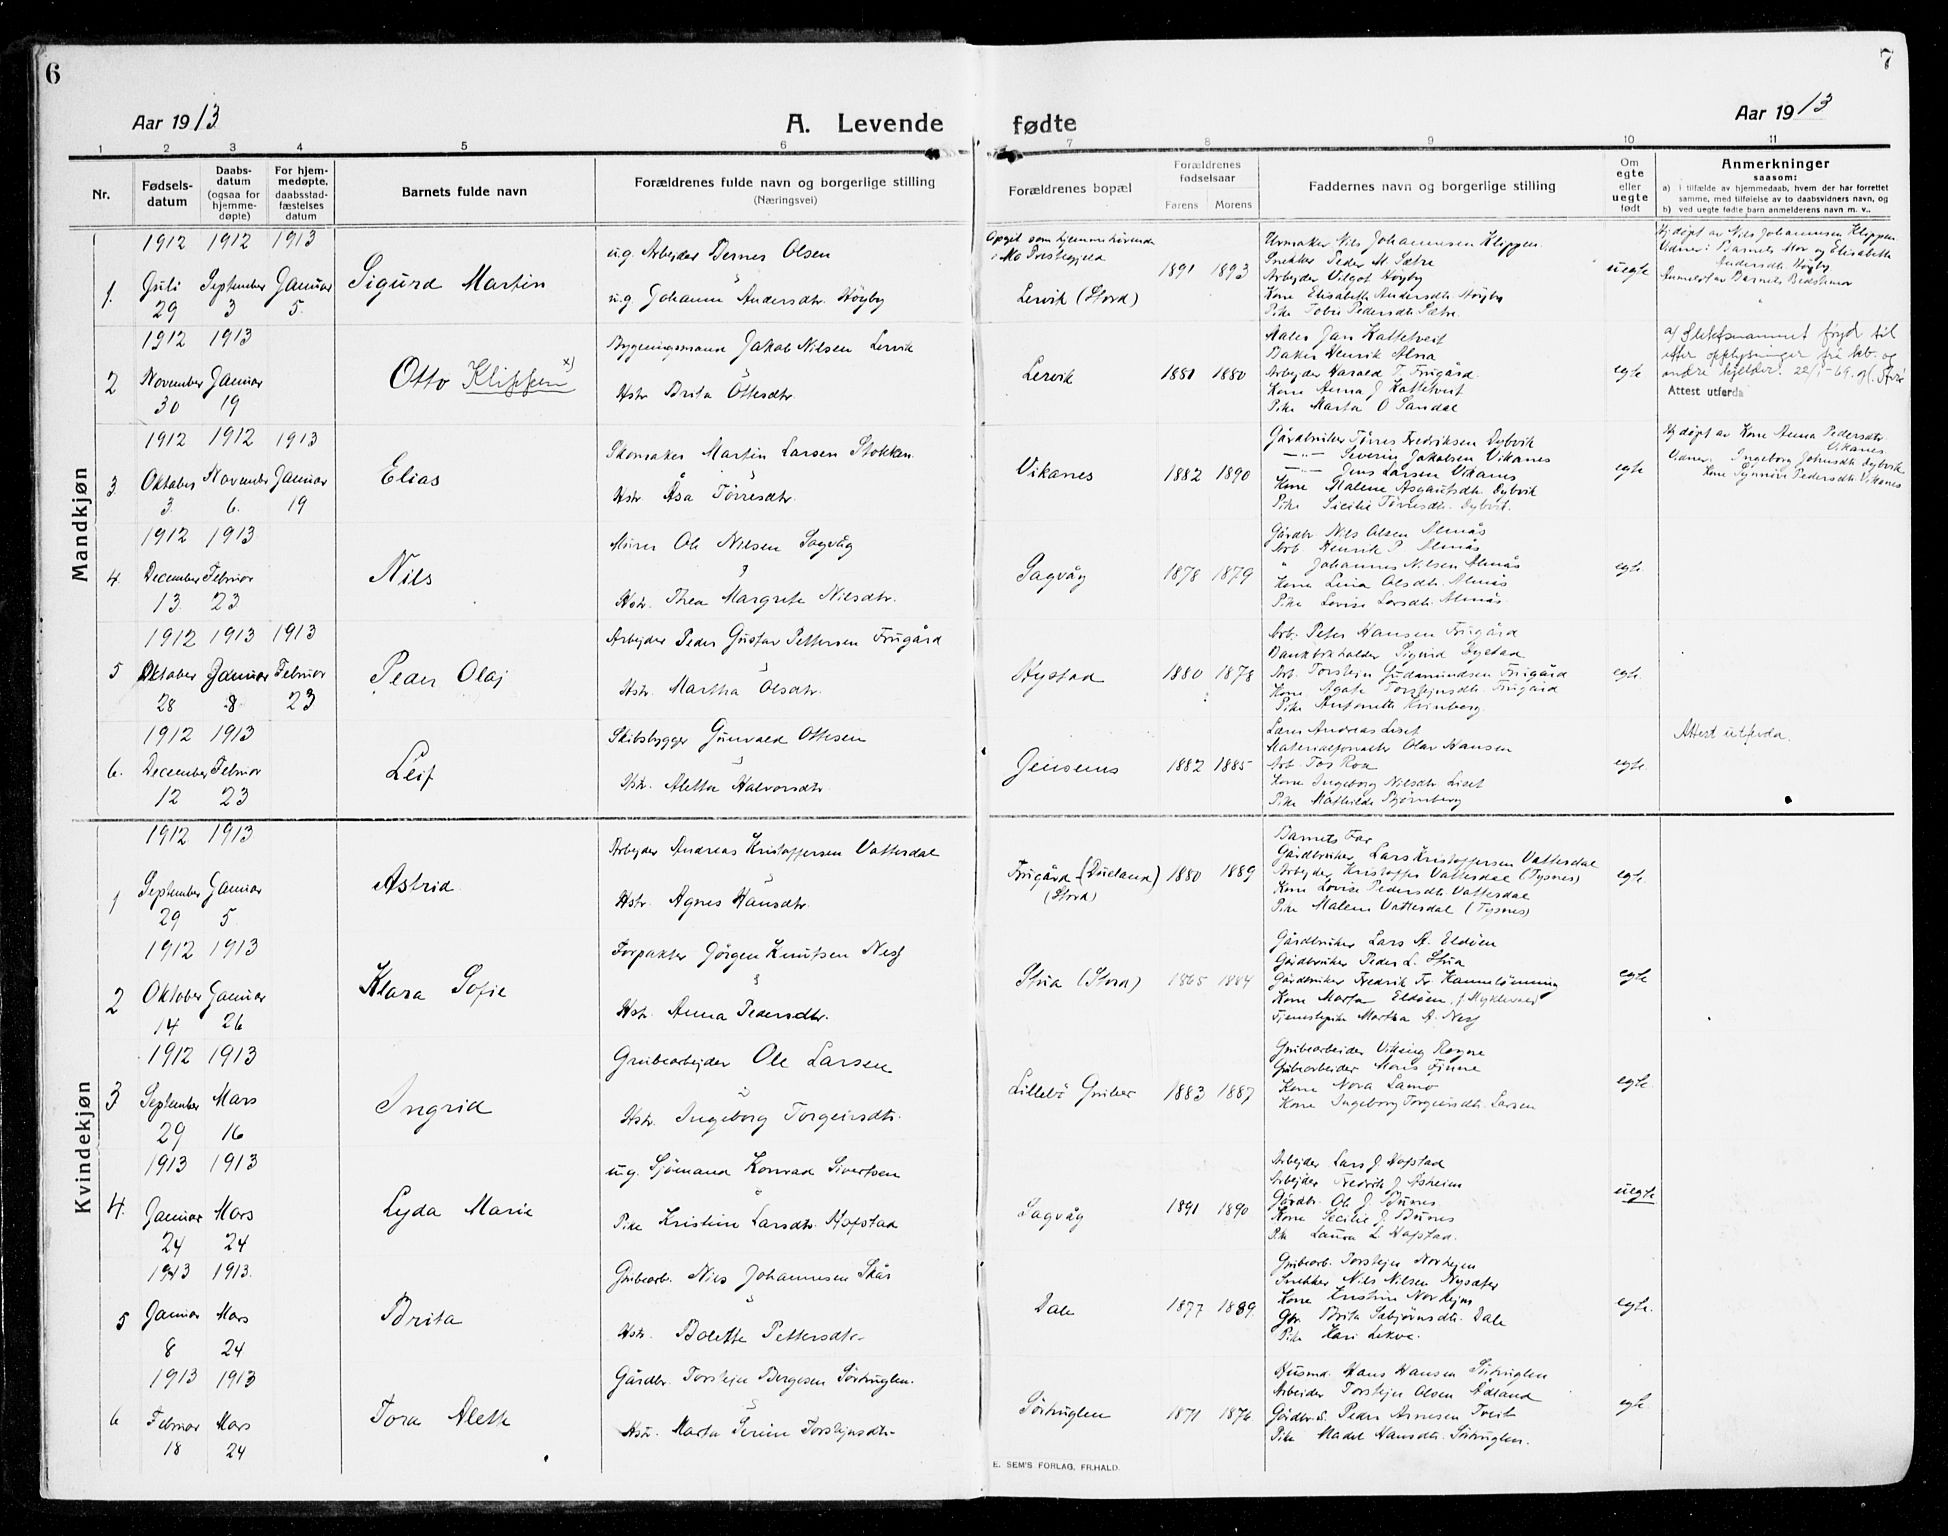 6
7
Aar 1913
A. Levende fødte
Aar 1913
1 2 3 4 5 6 7 8 9 10 11
Nr.
Fødsels-
datum
Daabs-
datum
(ogsaa for
hjemme-
døpte)
For hjem-
medøpte.
daabsstad-
fæstelses
datum
Barnets fulde navn
Forældrenes fulde navn og borgerlige stilling
(Næringsvei)
Forældrenes bopæl
Forældrenes
fødselsaar
Farens Morens
Faddernes navn og borgerlige stilling
Om
egte
eller
uegte
født
Anmerkninger
saasom:
a) i tilfælde av hjemmedaab, hvem der har forrettet
samme, med tilføielse av to daabsvidners navn, og
b) ved uegte fødte barn anmelderens navn m. v..
Mandkjøn
1912 1912 1913
1. Juli September Januar
29 3 5.
Sigurd Martin
u.g. Arbejder Bernes Olsen
u.g. Johanne Andersdtr. Högby
Opgit som hjemmehörende
i Mo Prestegjeld
Lervik (Stord)
1891 1893
Urmaker Nils Johannesen Klippen.
Snekker Peder M. Sætre
Arbejder Vilgot Högby
Kone Elisabeth Andersdtr. Högby
Pike Tobie Pedersdtr. Sætre.
uegte
Hj.döpt av Nils Johannesen Klippen
Vidner: Barnets Mor og Elisabeth
Andersdtr. Högby
Anmeldt av Barnets Bedstemor
1912 1913
2 November Januar
30 19
Otto Klippen x)
Bygningsmand Jakob Nilsen Lervik
Hstr. Brita Ottesdtr.
Lervik
1881 1880
Maler Jan Kattetveit
Baker Henrik Alna
Arbejder Harald T. Frugård
Kone Anna J. Kattetveit
Pike Marta O Sandal
egte
a) Slektsnamnet föyd til
etter opplysninger frå
22/1-69.
Attest utferda
1912 1912 1913
3 Oktober November Januar
3. 6. 19
Elias
Skomaker Martin Larsen Stokken
Hstr. Åsa Törresdtr.
Vikanes
1882 1890
Gårdbruker Törres Fredriksen Dybvik
—"— Severin Jakobsen Vikanes
—"— Jens Larsen Vikanes
Kone Malene Asgautsdtr. Dybvik
Pike Sicilie Törresdtr. Dybvik.
egte
Hj döpt av Kone Anna Pedersdtr.
Vikanes
Vidner: Ingeborg Johnsdtr. Dybvik
Kone Synnöve Pedersdtr. Vikanes
1912 1913
4 December Februar
13. 23
Nils
Murer Ole Nilsen Sagvåg
Hstr. Thea Margrete Nilsdtr.
Sagvåg
1878 1879
Gårdbr Nils Olsen Almås
Arb. Henrik P. Almås
" Johannes Nilsen Almås
Kone Lina Olsdtr. Almås
Pike Lovise Larsdtr. Almås.
egte.
1912 1913 1913
5 Oktober Januar Februar
28 8 23
Peder Olaj
Arbejder Peder Gustav Pettersen Frugård
Hstr. Martha Olsdtr.
Hystad
1880 1878
Arb. Peter Hansen Frugård
Bankbokholder Sigurd Hystad
Arb. Torstejn Gudmundsen Frugård
Kone Agate Torstejnsdtr. Frugård
Pike Antonette Kvinberg.
egte.
1912 1913
6. December Februar
12 23
Leif
Skibsbygger Gunvald Ottesen
Hstr. Aletta Halvorsdtr.
Jensenes
1882 1885
Lars Andreas Liset
Materialforvalter Olav Hansen
Arb. Tos Roa
Kone Ingeborg Nilsdtr Liset
Pike Mathilde Björnberg
egte.
Attest utferda.
Kvindekjøn
1912 1913
1 September Januar
29 5.
Astrid
Arbejder Andreas Kristoffersen Vattesdal
Hstr. Agnes Hansdtr.
Frugård (Dueland)
(Stord)
1880 1889
Barnets Far
Gårdbruker Lars Kristoffersen Vattesdal
Arbejder Kristoffer Vattesdal (Tysnes)
Kone Lovise Pedersdtr. Vattesdal
Pike Malene Vattesdal (Tysnes)
egte.
1912 1913
2 Oktober Januar
14 26
Klara Sofie
Forpakter Jörgen Knutsen Nesj
Hstr. Anna Pedersdtr.
Stua (Stord)
1865 1884
Gårdbruker Lars A. Eldöen
Gårdbruker Peder L. Stua
Gårdbruker Fredrik Fr. Kannelönning
Kone Marta Eldöen, f Myklevold
Tjenestepike Martha A. Nesj
egte
1912 1913
3 September Mars
29 16
Ingrid
Grubearbejder Ole Larsen
Hstr. Ingeborg Torgeirsdtr.
Lillebö Gruber
1883 1887
Grubearbeider Viking Rogne
Grubearbeider Mons Finne
Kone Nora Lamo
Kone Ingeborg Torgeirsdtr. Larsen
egte.
1913 1913
4. Januar Mars
24 24
Lyda Marie
u.g. Sjömand Konrad Sivertsen
Pike Kristine Larsdtr. Hofstad
Sagvåg
1891 1890
Arbejder Lars J Hofstad
Arbejder Fredrik J Åsheim
Gårdbr. Ole J Bunes
Kone Secilie J Bunes
Pik Laura L. Hofstad.
uegte
1913 1913.
5 Januar Mars
8 24
Brita
Grubearb. Nils Johannesen Skår
Hstr. Bolette Pettersdtr.
Dale
1877 1889
Grubearb. Torstejn Norhejm
Snekker Nils Nilsen Nysæter
Kone Kristine Norhejm
Gbr. Brita Sebjörnsdtr. Dale
Pike Kari Lekve.
egte.
1913 1913
6 Februar Mars
18 24
Tora Alette
Gårdbr. Torstejn Bergesen Sörhuglen.
Hstr. Marta Serine Torstejnsdtr.
Sörhuglen
1871 1876
Husmd. Hans Hansen Sörhuglen
Arbejder Torstejn Olsen Ådland
Gårdbr.s. Peder Arnesen Tveit
Pike Madel Hansdtr. Sörhuglen.
egte.
E. SEM'S FORLAG, FR.HALD.